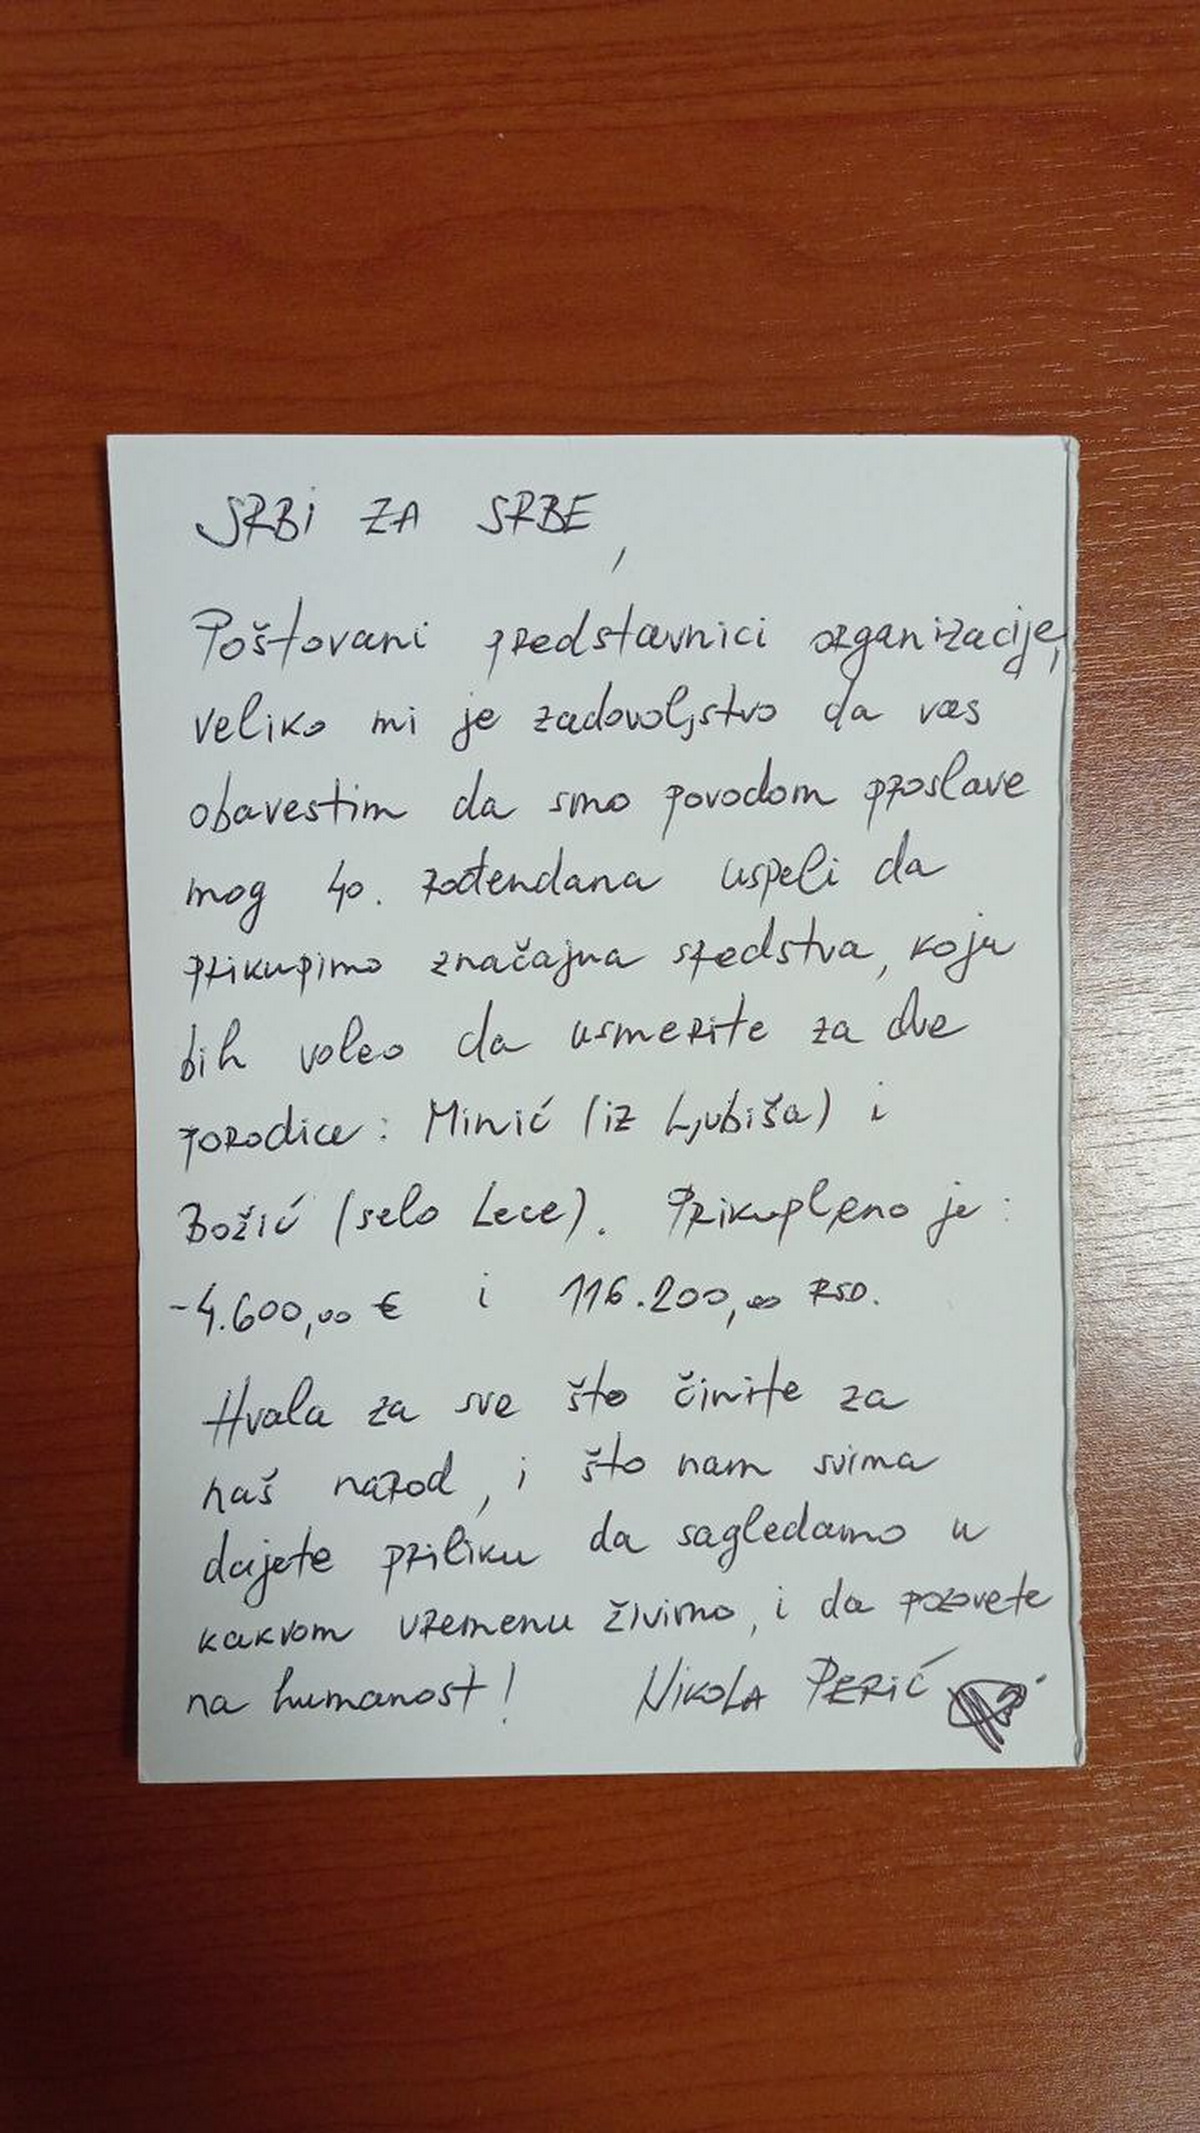 SRBi ZA SRBE,
Poštovani predstavnici organizacije,
veliko mi je zadovoljstvo da vas
obavestim da smo povodom proslave
mog 40. rođendana uspeli da
prikupimo značajna sredstva, koja
bih voleo da usmerite za dve
porodice: Minić (iz Ljubiša) i
Božić (selo Lece). Prikupljeno je:
- 4.600,00 € i 116.200,00 RSD.
Hvala za sve što činite za
naš narod, i što nam svima
dajete priliku da sagledamo u
kakvom vremenu živimo, i da pozovete
na humanost! NIKOLA PERIĆ